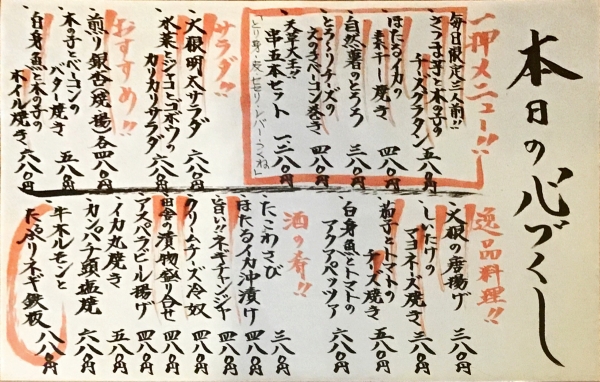 本日の心づくし
一押メニュー!!
毎日限定三人前!!
さつま芋と木の子の
チーズグラタン 五八〇円
ほたるイカの
素干し焼き 四八〇円
自然薯のとろろ 三八〇円
とろ〜りチーズの
えのきベーコン巻き 四八〇円
天草大王!!
串五本セット 一二八〇円
サラダ!!
大根明太サラダ 六八〇円
水菜とジャコとゴボウの
カリカリサラダ 六八〇円
おすすめ!!
煎り銀杏(焼、揚)各四八〇円
木の子とベーコンの
バター焼き 五八〇円
白身魚と木の子の
ホイル焼き 六八〇円
逸品料理!!
大根の唐揚げ 三八〇円
しいたけの
マヨネーズ焼き 三八〇円
茄子とトマトの
チーズ焼き 五八〇円
白身魚とトマトの
アクアパッツァ 六八〇円
酒の肴!!
たこわさび 三八〇円
ほたるイカ沖漬け 三八〇円
旨い!!ネギチャンジャ 四八〇円
クリームチーズ冷奴 四八〇円
田舎の漬物盛り合せ 四八〇円
アスパラビール揚げ 四八〇円
イカ丸焼き 五八〇円
カンパチ頭塩焼 六八〇円
牛ホルモンと
たっぷりネギ鉄板 八八〇円